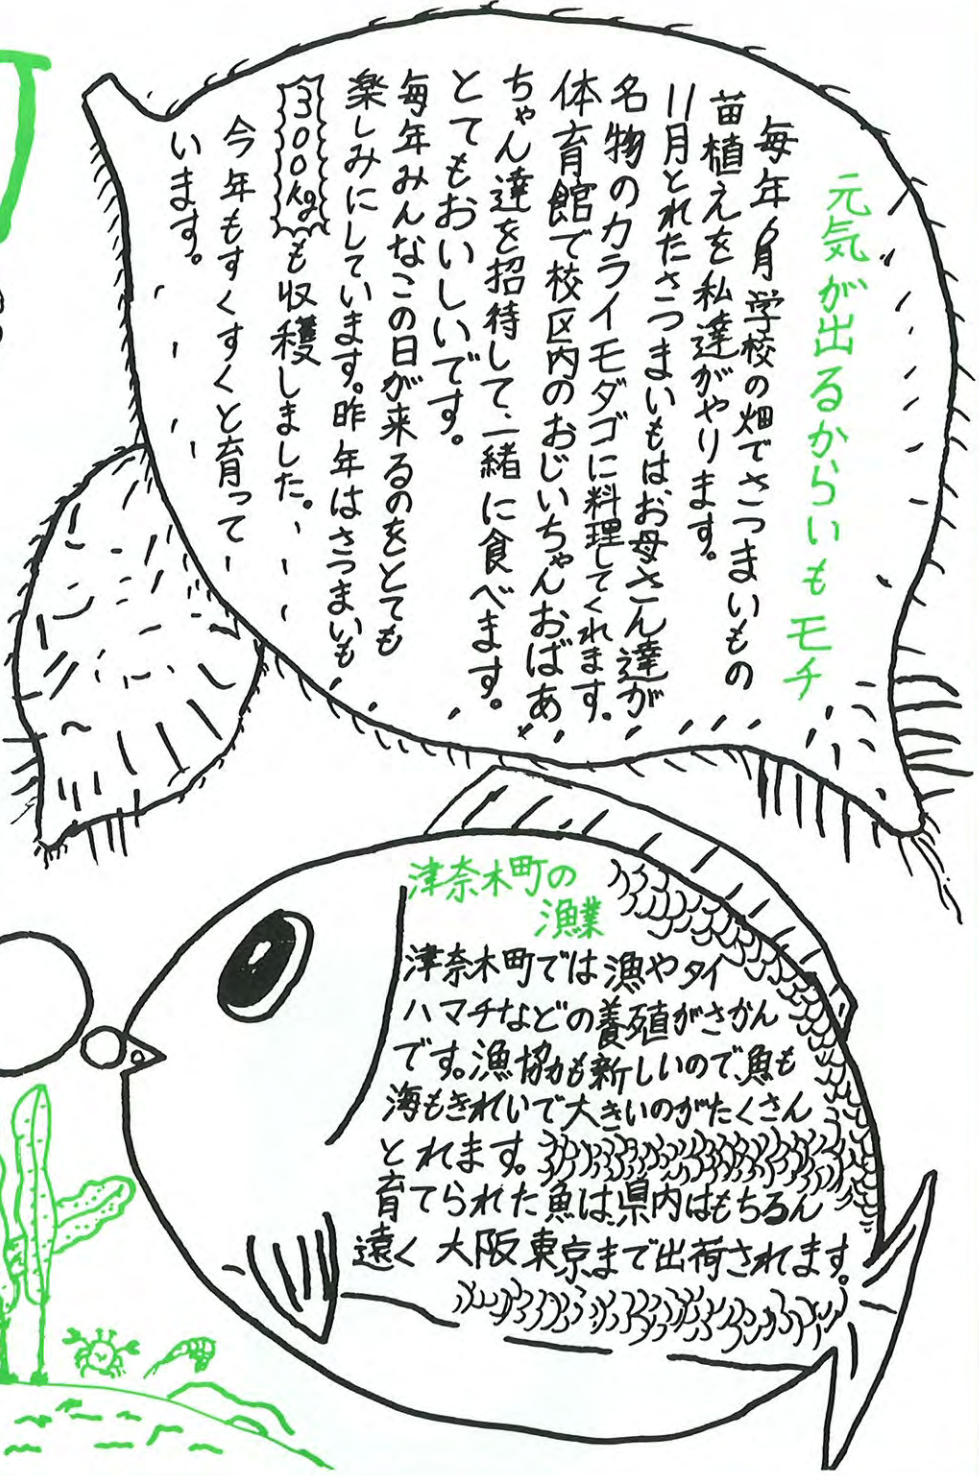 元気が出るからいもモチ
毎年6月学校の畑でさつまいもの
苗植えを私達がやります。
11月とれたさつまいもはお母さん達が
名物のカライモダゴに料理してくれます。
体育館で校区内のおじいちゃんおばあ
ちゃん達を招待して、一緒に食べます。
とてもおいしいです。
毎年みんなこの日が来るのをとても
楽しみにしています。昨年はさつまいも
300kgも収穫しました。
今年もすくすくと育って
います。
津奈木町の
漁業
津奈木町では漁やタイ
ハマチなどの養殖がさかん
です。漁協も新しいので魚も
海もきれいで大きいのがたくさん
とれます。
育てられた魚は県内はもちろん
遠く大阪東京まで出荷されます。